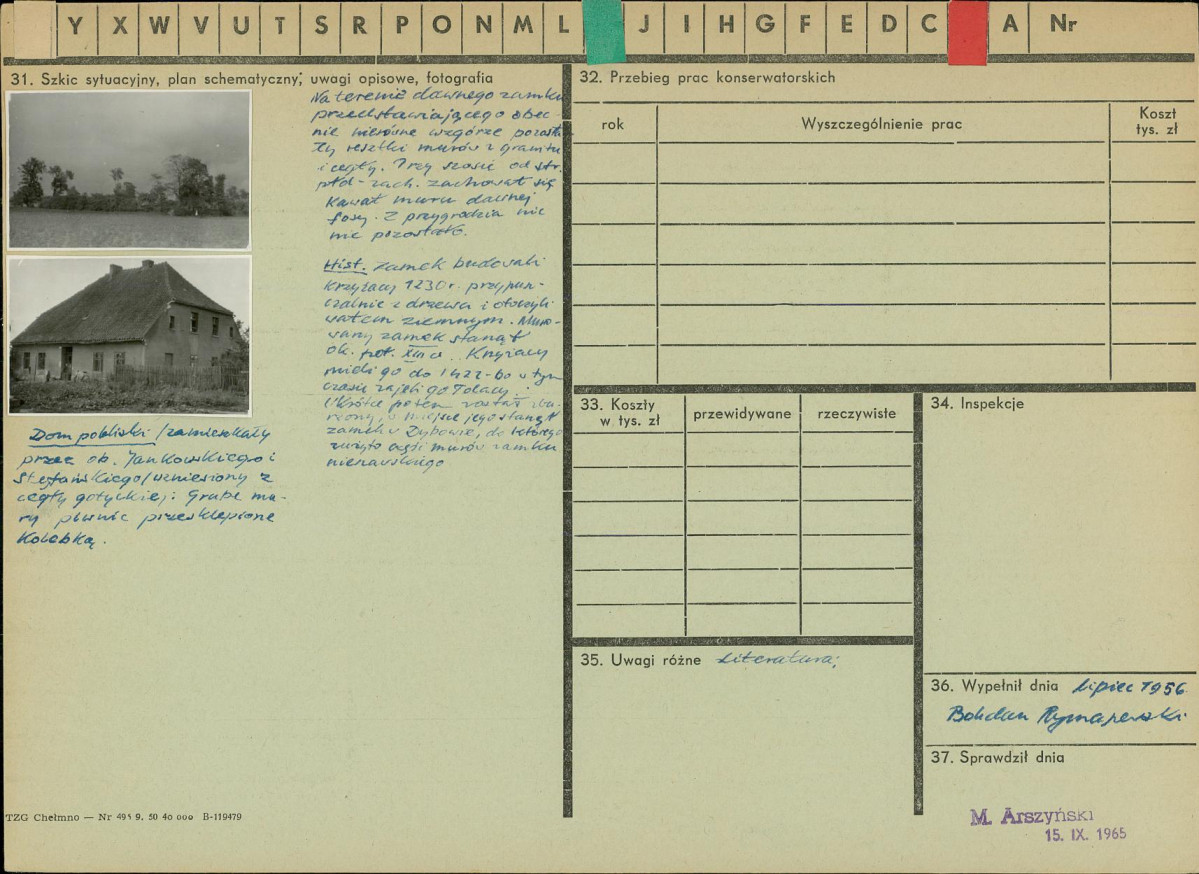 Y X W V U T S R P O N M L J I H G F E D C A Nr
31. Szkic sytuacyjny, plan schematyczny, uwagi opisowe, fotografia
Na terenie dawnego zamku
przedstawiającego obec-
nie nierówne wzgórze pozosta-
ły resztki murów z granitu
i cegły. Przy szosie od str.
płd-zach. zachował się
kawał muru dawnej
fosy. Z przygrodzia nic
nie pozostało.
Hist. zamek budowali
Krzyżacy 1230 r. przypusz-
czalnie z drzewa i otoczyli
wałem ziemnym. Muro-
wany zamek stanął
ok. poł. XIII w. Krzyżacy
mieli go do 1422 - bo w tym
czasie zajęli go Polacy.
Wkrótce potem został zbu-
rzony, w miejsce jego stanął
zamek w Dybowie, do którego
zużyto części murów zamku
nieszawskiego
Dom pobliski /zamieszkały
przez ob. Jankowskiego i
Stefańskiego/ wzniesiony z
cegły gotyckiej: Grube mu-
ry piwnic przesklepione
kolebką.
TZG Chełmno — Nr 495 9. 50 40 000 B-119479
32. Przebieg prac konserwatorskich
rok Wyszczególnienie prac Koszt
tys. zł
33. Koszty
w tys. zł przewidywane rzeczywiste
34. Inspekcje
35. Uwagi różne Literatura:
36. Wypełnił dnia lipiec 1956
Bohdan Rymaszewski
37. Sprawdził dnia
M. Arszyński
15. IX. 1965